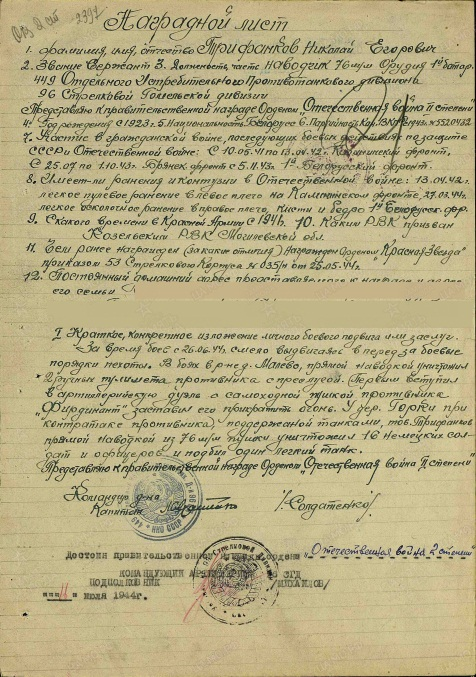 Наградной лист
1. Фамилия, имя, отчество Трифанков Николай Егорович
2. Звание Сержант 3. Должность, часть Наводчик 76 мм орудия 1й батар.
449 Отдельного Истребительного Противотанкового дивизиона
96 Стрелковой Гомельской дивизии
Представляю к правительственной награде Орденом "Отечественная война II степени"
4. Год рождения с 1923 5. Национальность Белорус 6. Партийность Кан. ВКП(б)
СССР и Отечественной войне: С 10.05.41 по 13.04.42. Калининский фронт,
С 25.07 по 1.10.43. Брянск. фронт с 5.11.43. 1й Белорусский фронт.
8. Имеет-ли ранения и контузии в Отечественной войне: 13.04.42г.
легкое пулевое ранение в левое плечо на Калининском фронте, 27.03.44г.
легкое осколочное ранение в правое плечо, кисти и бедро 1й Белорусск. фр.
9. С какого времени в Красной Армии с 1941г. 10. Каким РВК призван
РВК Могилевской обл.
11. Чем ранее награжден (за какие отличия) Награжден Орденом "Красная Звезда"
приказом 53 Стрелкового Корпуса № 035/н от 25.05.44г.
12. Постоянный домашний адрес представляемого к награде и адрес
его семьи
I Краткое, конкретное изложение личного боевого подвига или заслуг.
За время боев с 26.06.44г. смело выдвигаясь вперед за боевые
порядки пехоты. В боях в р-не д. Малево, прямой наводкой уничтожил
2 ручных пулимета противника с прислугой. Первым вступил
в артиллерийскую дуэль с самоходной пушкой противника
"Фирдинант" заставил его прикратить огонь. У дер. Горки при
контратаке противника, поддержаной танками, тов. Трифанков
прямой наводкой из 76 мм пушки уничтожил 16 немецких сол-
дат и офицеров и подбил один легкий танк.
Представляю к правительственной награде Орденом "Отечественная война II степени"
Командир д-на
Капитан /-Солдатенко/
Достоин правительственной награды ордена "Отечественная война 2 степени"
КОМАНДУЮЩИЙ СГД
ПОДПОЛКОВНИК /МИХАЙЛОВ/
июля 1944г.